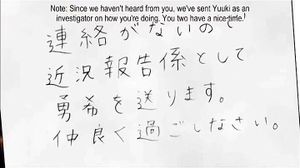 Note: Since we haven't heard from you, we've sent Yuuki as an
investigator on how you're doing. You two have a nice time.
連絡がないので
近況報告係として
勇希を送ります。
仲良く過ごしなさい。